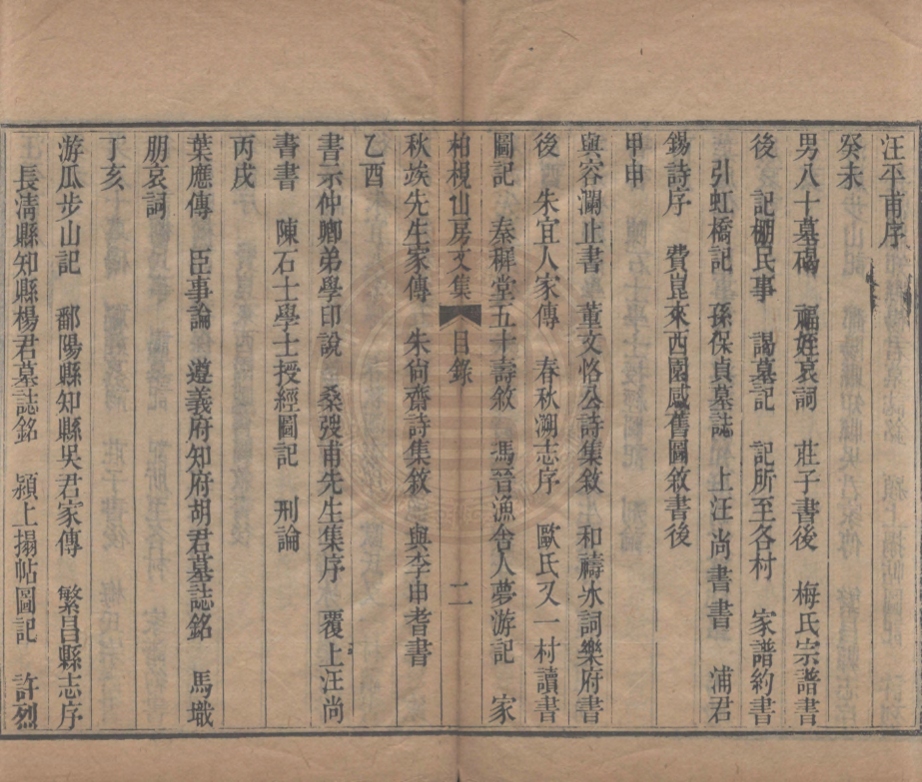 汪平甫序
癸未
男八十墓碣　福姪哀詞　莊子書後　梅氏宗譜書
後　記棚民事　謁墓記　記所至各村　家譜約書
引虹橋記　孫保貞墓誌　上汪尚書書　浦君
錫詩序　費崑來西園感舊圖敘書後
甲申
與容瀾止書　董文恪公詩集敘　和禱冰詞樂府書
後　朱宜人家傳　春秋溯志序　歐氏又一村讀書
圖記　秦穉堂五十壽敘　馮晉漁舍人夢游記　家
柏梘山房文集　目錄　二
秋竢先生家傳　朱尙齋詩集敘　與李申耆書
乙酉
書示仲卿弟學印說　桑弢甫先生集序　覆上汪尚
書書　陳石士學士授經圖記　刑論
丙戌
葉應傳　臣事論　遵義府知府胡君墓誌銘　馬墩
朋哀詞
丁亥
游瓜步山記　鄱陽縣知縣吳君家傳　繁昌縣志序
長清縣知縣楊君墓誌銘　潁上搨帖圖記　許烈